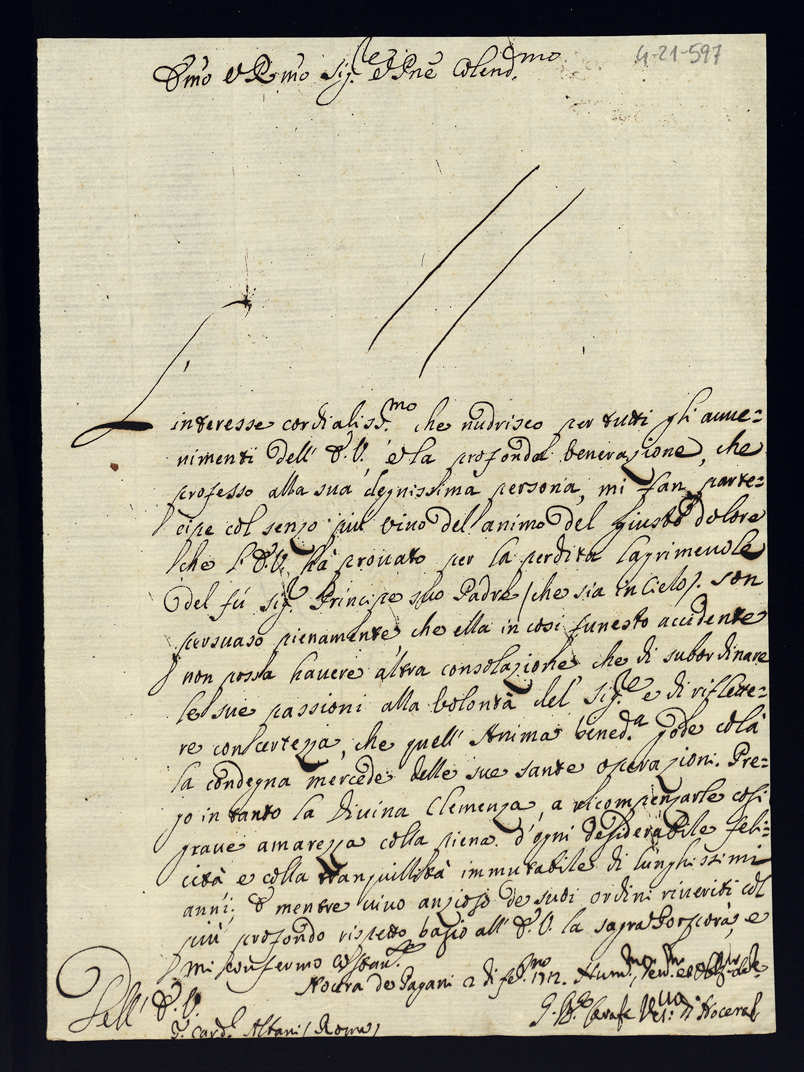 4-21-597
Em͞o e R͞mo Sig.re e P͞ne Colend.mo
L'
interesse cordialiss.mo che nudrisco per tutti gli avve=
nimenti dell' E.V. e la profonda venerazione, che
professo alla sua degnissima persona, mi fan parte=
cipe col senso più vivo dell'animo del giusto dolore
che l'E.V. hà provato per la perdita lagrimevole
del fù Sig.r Principe suo Padre (che sia in Cielo). Son
persuaso pienamente che ella in così funesto accidente
non possa havere altra consolazione che di subordinare
le sue passioni alla volontà del Sig.re e di riflette=
re con certezza, che quell' Anima bened.a gode colà
la condegna mercede delle sue sante operazioni. Pre=
go in tanto la Divina Clemenza, a ricompenzarle così
grave amarezza colla piena d'ogni desiderabile feli=
cità e colla tranquillità immutabile di lunghissimi
anni; E mentre vivo anzioso de suoi ordini riveriti col
più profondo rispetto bagio all' E.V. la sagra Porpora, e
mi confermo
Nocera de Pagani 2 di 1712.
Dell' E.V.
S.r Card.l Albani (Roma)
Carafa Ves.o di Nocera